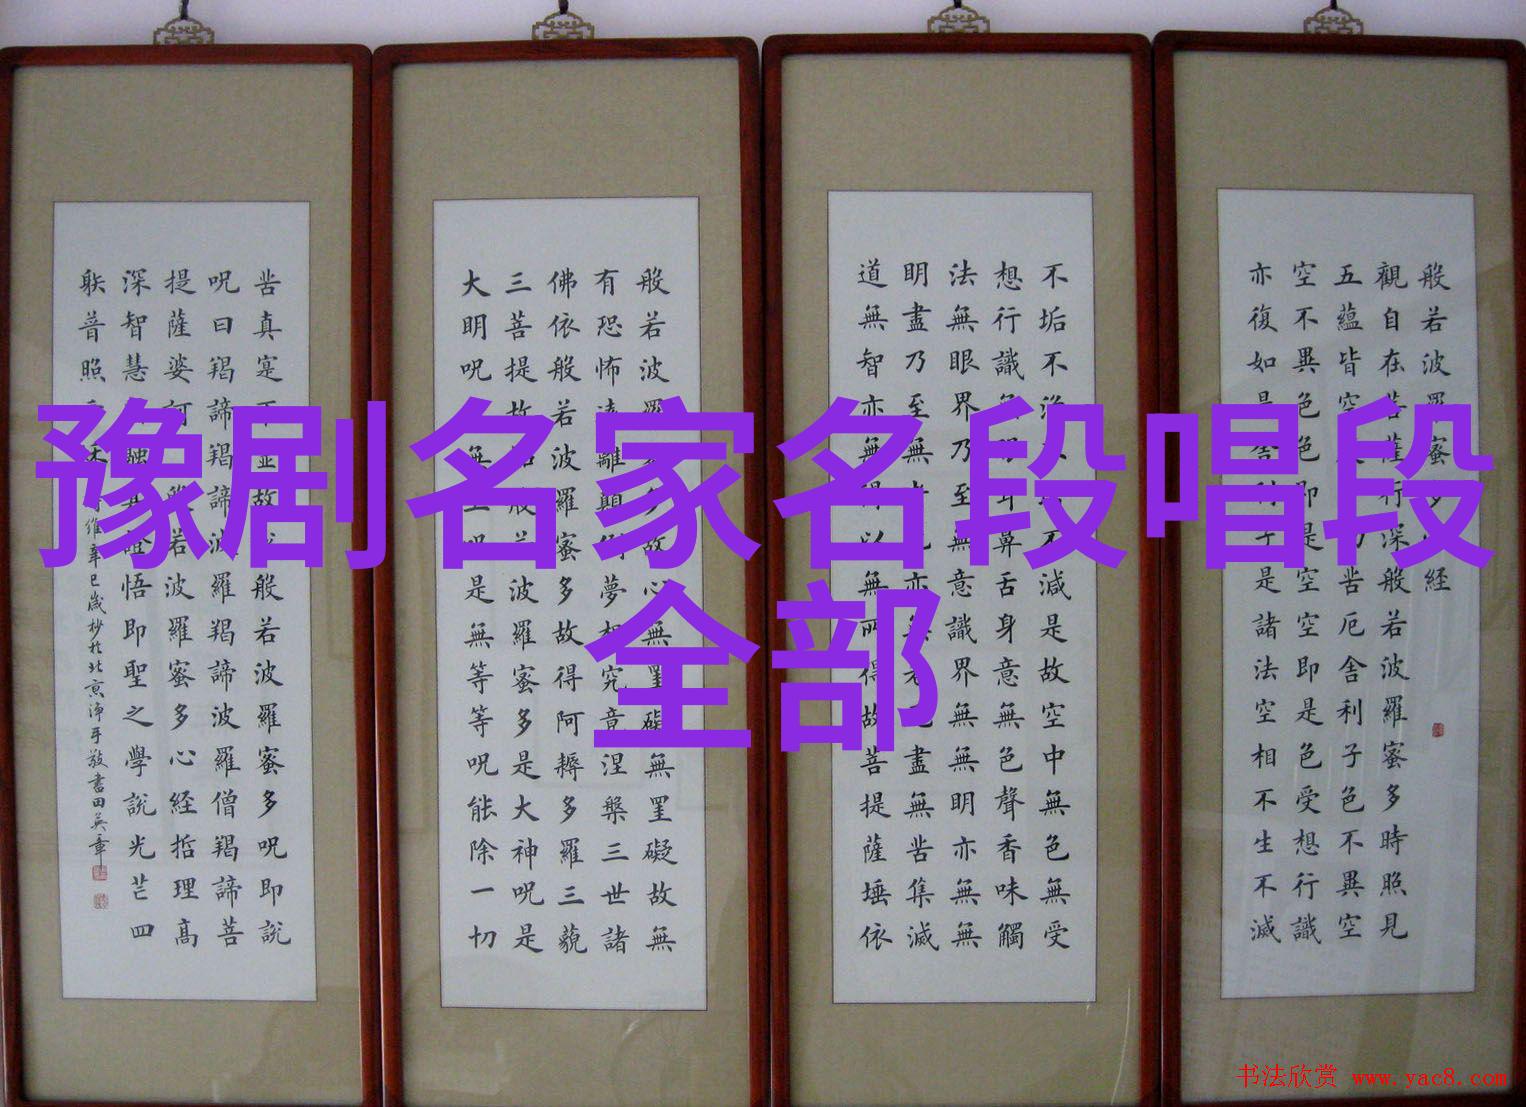 豫剧名家名段唱段
全部
般若波羅蜜多経
觀自在菩薩行深般若波羅蜜多時照見
五蘊皆空苦厄舍利子色不異空
空不異色色即是空空即是色受想行識
亦復如是舍利子是諸法空相不生不滅
不垢不減是故空中無色無受
想行識耳鼻舌身意無色聲香味觸
法無眼界乃至無意識界無無明亦無無
明盡乃至無亦無老盡無苦集滅
道無智亦無得以無所得故菩提薩埵依
般若波羅多故心無罣礙無罣礙故無
有恐怖遠離顛倒夢想究竟涅槃三世諸
佛依般若波羅蜜多故得阿耨多羅三藐
三菩提故般若波羅蜜多是大神呪是
大明呪無上呪是無等等呪能除一切
苦真寔不虛故般若波羅蜜多呪即說
呪曰羯諦羯諦波羅羯諦波羅僧羯諦菩
提薩婆訶般若波羅蜜多心経哲理高
深智慧融證悟即聖之學說光芒四
躲普照
維辛巳歲杪於北京淨手敬書田英章
书法欣赏 www.yac8.com